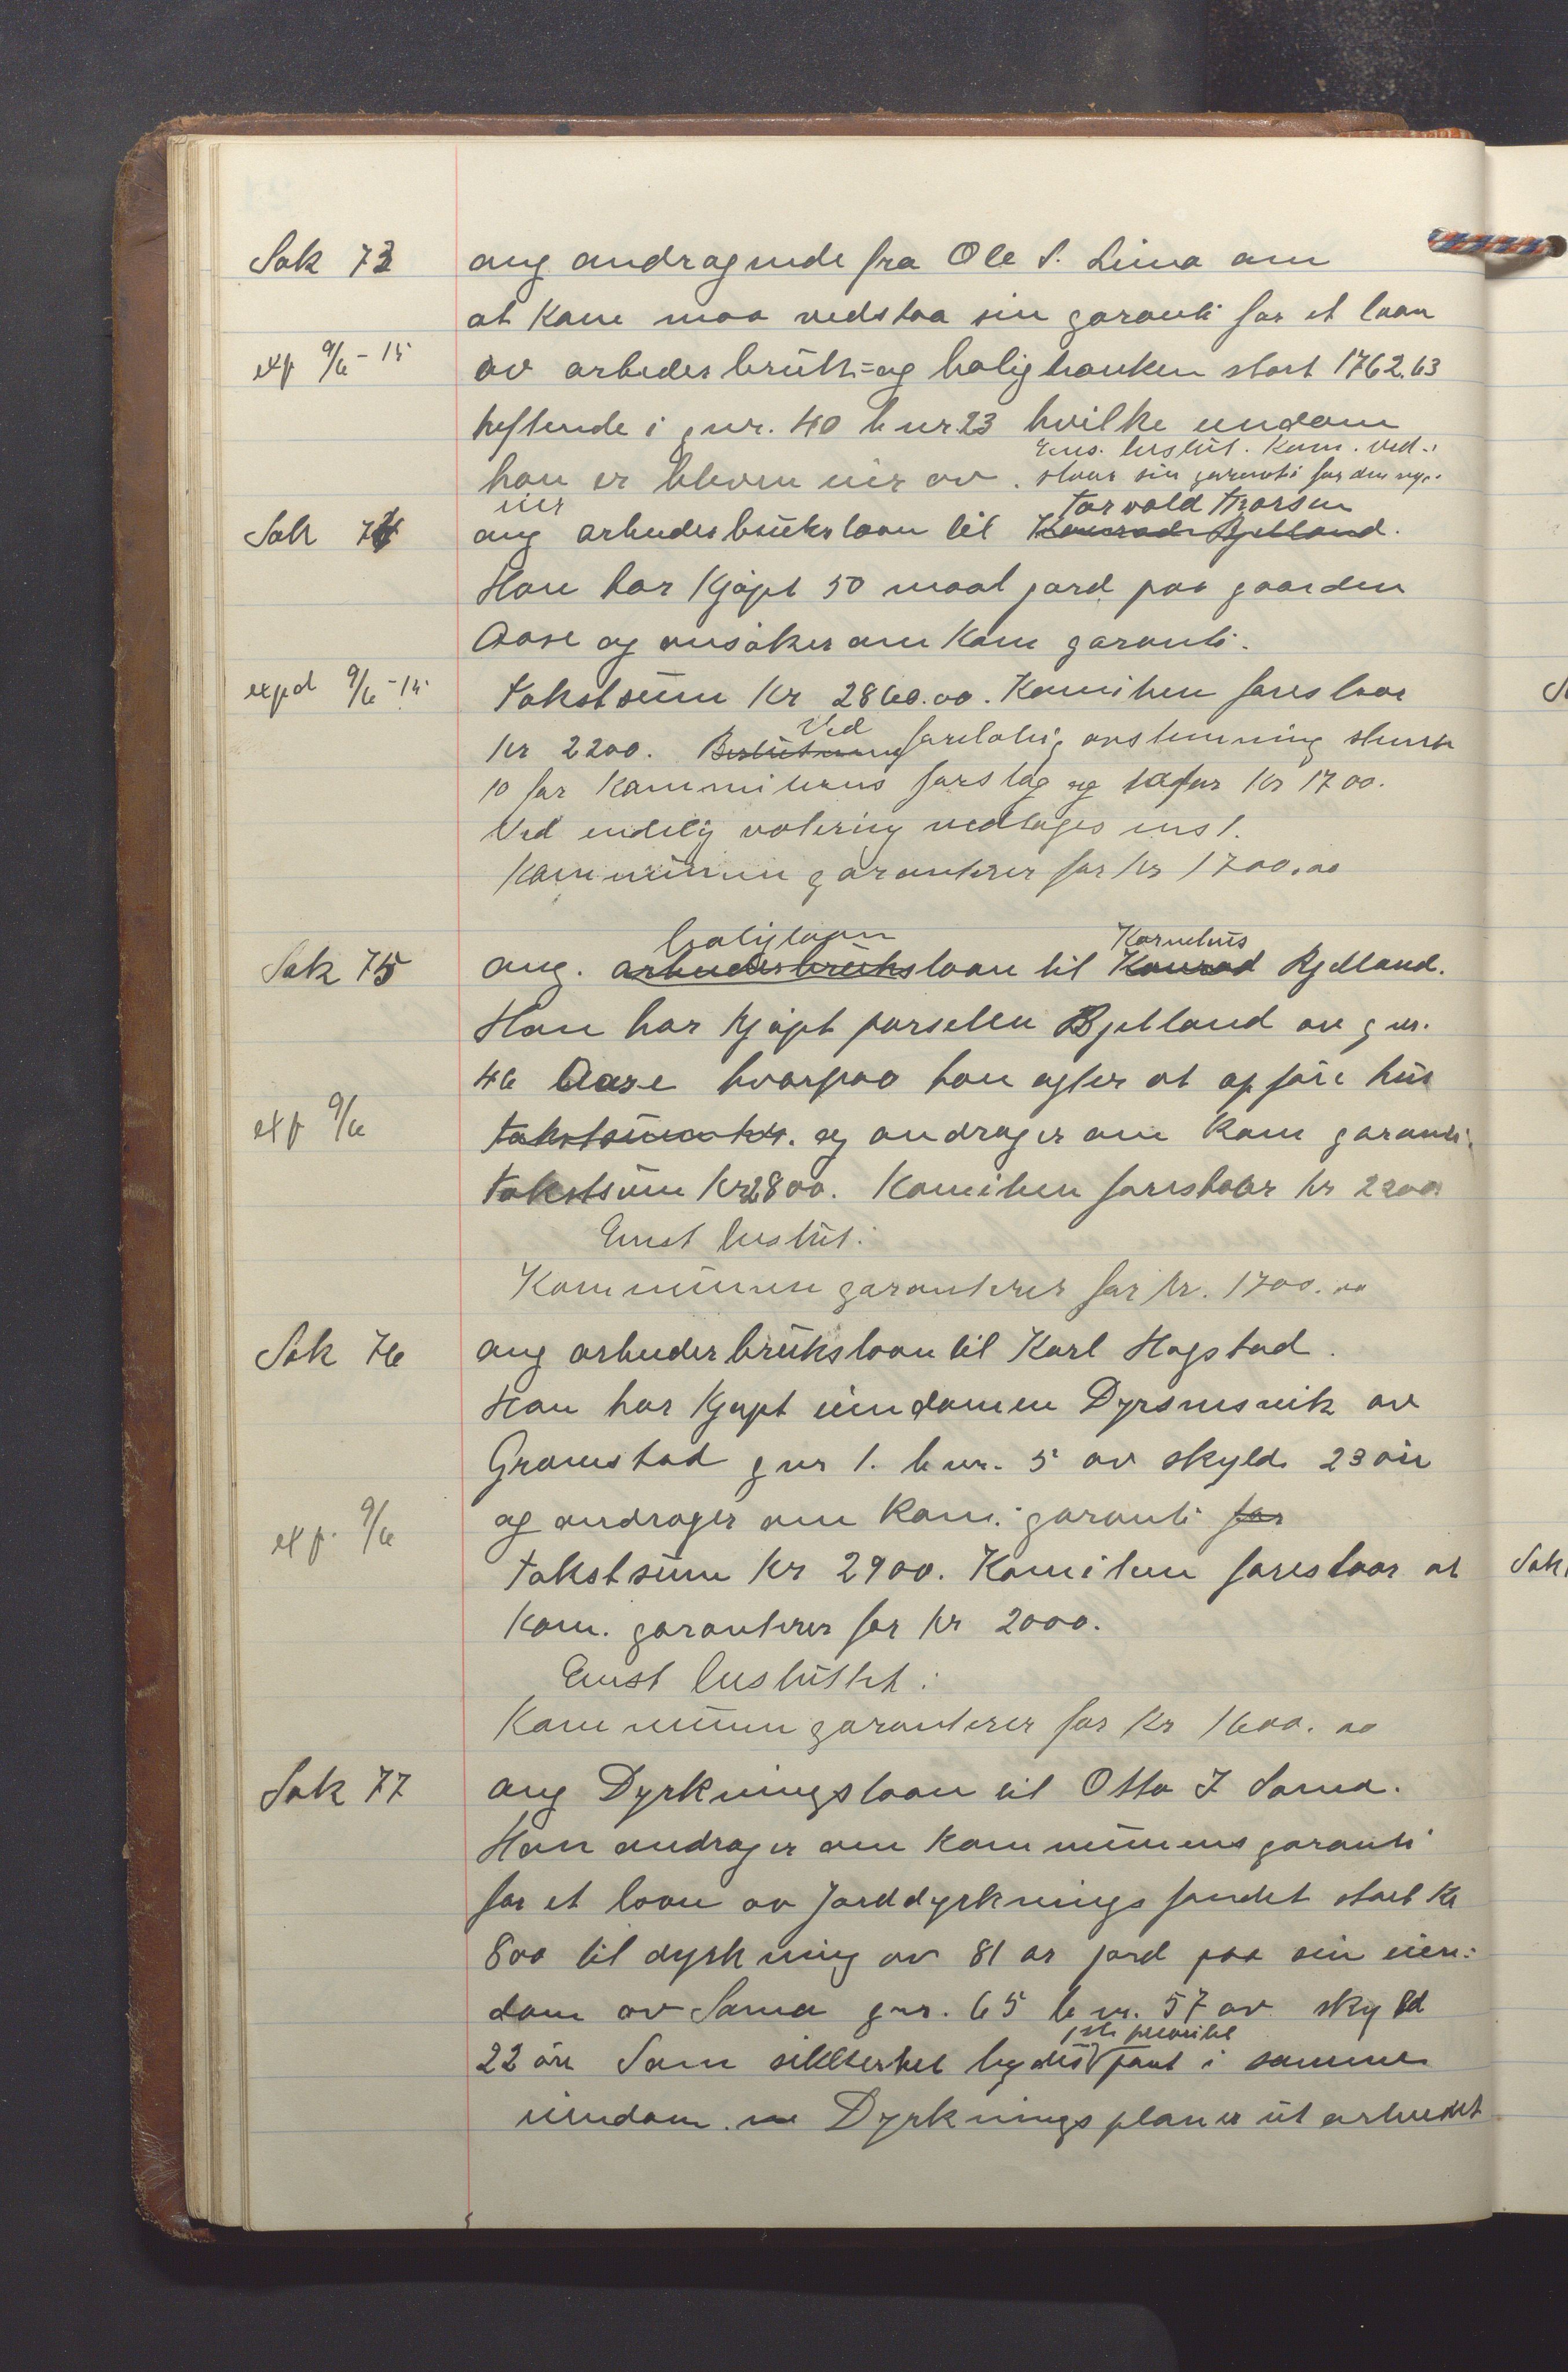 Sak 73 ang andragende fra Ole S. Lima om
at Kom maa vedstaa sin garanti for et laan
exp 9/6-15 av arbeiderbruk=og boligbanken stort 1762.63
heftende i gnr. 40 bnr 23 hvilke eiendom
Ens. beslut. Kom. ved-:
han er bleven eier av. staar sin garanti for den nye.
eier Torvald Thorsen
Sak 74 ang arbeiderbruks laan til Konrad Bjelland.
Han har Kjøpt 50 maal jord paa gaarden
Aase og ansøker om Kom garanti.
expd 9/6-15 Takstsum Kr 2860.00. Komiteen foreslaar
Ved
Kr 2200. Beslutning foreløbig avstemning stemte
10 for Kommiteens forslag og for Kr 1700.
Ved endelig votering vedtoges enst.
Kommunen garanterer for Kr 1700.00
boliglaan Kornelius
Sak 75 ang. arbeiderbrukslaan til Konrad Bjelland.
Han har kjøpt parsellen Bjelland av gnr.
46 Aase hvorpaa han agter at opføre hus
exp 9/6 takstsum kr. og andrager om Kom garanti.
Takstsum Kr 2800. Komiteen foreslaar kr 2200
Enst beslut:
Kommunen garanterer for kr. 1700.00
Sak 76 ang arbeiderbrukslaan til Karl Hogstad.
Han har Kjøpt eiendomen Dyrsnesvik av
Gramstad gnr 1. bnr. 5 av skyld 23 øre
exp. 9/6 og andrager om Kom. garanti for
Takstsum Kr 2900. Komiteen foreslaar at
Kom. garanterer for Kr 2000.
Enst besluttet:
Kommunen garanterer for Kr 1600.00
Sak 77 ang Dyrkningslaan til Otto I Soma.
Han andrager om Kommunens garanti
for et laan av Jorddyrkningsfondet stort Kr
800 til dyrkning av 81 ar jord paa sin eien:
dom av Soma gnr. 65 bnr. 57 av skyld
1ste prioritet
22 øre Som sikkerhet bydes pant i samme
eiendom. Dyrkningsplan er utarbeidet